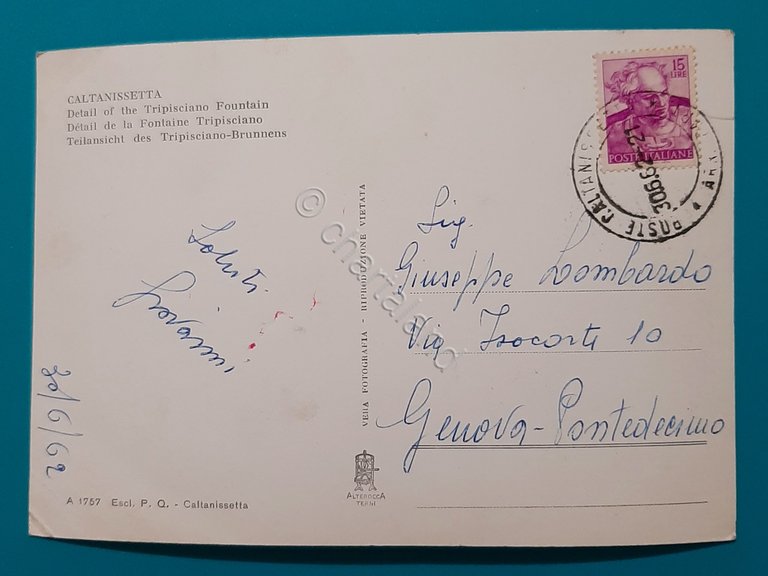 CALTANISSETTA
Detail of the Tripisciano Fountain
Détail de la Fontaine Tripisciano
Teilansicht des Tripisciano-Brunnens
15
LIRE
POSTE ITALIANE
POSTE CALTANISS
30.6.62-21
Saluti
Giovanni
30/6/62
VERA FOTOGRAFIA - RIPRODUZIONE VIETATA
Sig.
Giuseppe Lombardo
Via Isocorte 10
Genova-Pontedecimo
ALTEROCCA
TERNI
A 1757 Escl. P. Q. - Caltanissetta
© chartaland